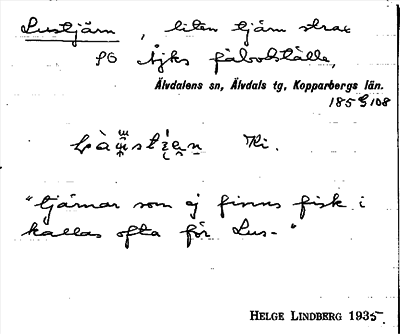 Lustjärn, liten tjärn strax
SO Njks fäbodställe,
Älvdalens sn, Älvdals tg, Kopparbergs län.
185 G 108
Hi.
"tjärnar som ej finns fisk i
kallas ofta för Lus-"
HELGE LINDBERG 1935.